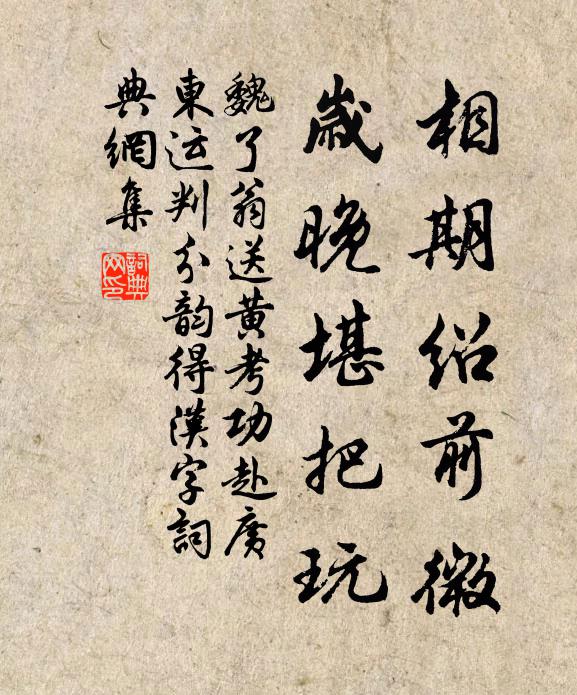 相期紹前徽
歲晚堪把玩
魏了翁送黃考功赴廣
東运判分韵得漢字詞
典網集
詞典网印